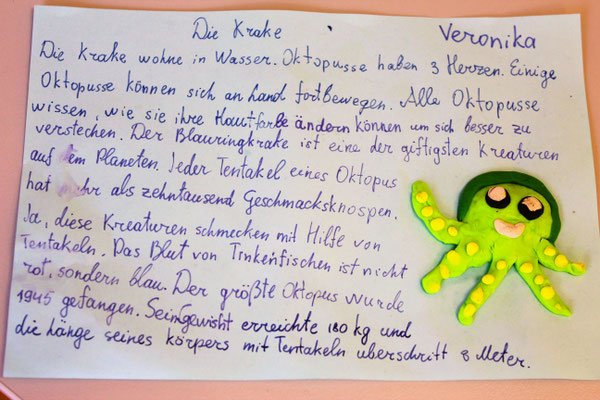 Die Krake
Veronika
Die Krake wohne in Wasser. Oktopusse haben 3 Herzen. Einige
Oktopusse können sich an Land fortbewegen. Alle Oktopusse
wissen, wie sie ihre Hautfarbe ändern können um sich besser zu
verstechen. Der Blauringkrake ist eine der giftigsten Kreaturen
auf dem Planeten. Jeder Tentakel eines Oktopus
hat mehr als zehntausend Geschmacksknospen.
Ja, diese Kreaturen schmecken mit Hilfe von
Tentakeln. Das Blut von Tinkenfischen ist nicht
rot, sondern blau. Der größte Oktopus wurde
1945 gefangen. Seingewisht erreichte 180 kg und
die Länge seines körpers mit Tentakeln überschritt 8 Meter.